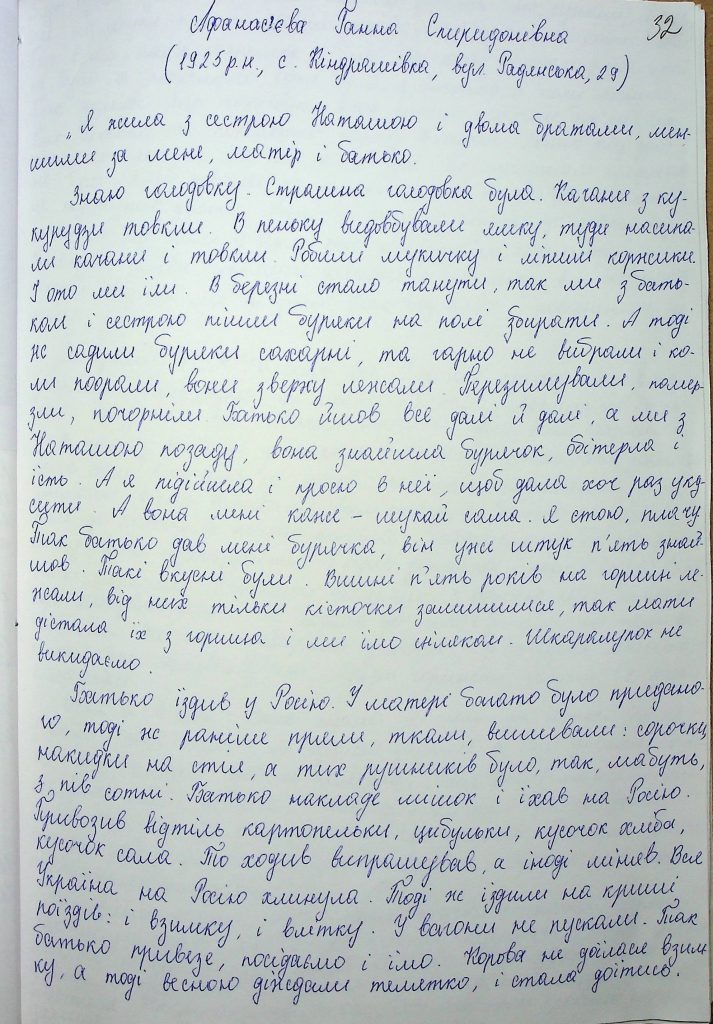 Афанасієва Ганна Спиридонівна
32
(1925 р.н., с. Кіндрашівка, вул. Радянська, 29)
„Я жила з сестрою Наташою і двома братами, мен-
шими за мене, матір і батько.
Знаю голодовку. Страшна голодовка була. Качани з ку-
курудзи товкли. В пеньку видовбували ямку, туди насипа-
ли качани і товкли. Робили мукичку і ліпили коржики.
І ото ми їли. В березні стало танути, так ми з бать-
ком і сестрою пішли буряки на полі збирати. А тоді
ж садили буряки сахарні, та гарно не вибрали і ко-
ли поорали, вони зверху лежали. Перезимували, помер-
зли, почорніли. Батько йшов все далі й далі, а ми з
Наташою позаду, вона знайшла бурячок, обітерла і
їсть. А я підійшла і прошу в неї, щоб дала хоч раз уку-
сити. А вона мені каже – шукай сама. Я стою, плачу.
Так батько дав мені бурячка, він уже штук п'ять знай-
шов. Такі вкусні були. Вишні п'ять років на горищі ле-
жали, від них тільки кісточки залишилися, так мати
дістала їх з горища і ми їмо гілякам. Шкаралупок не
викидаємо.
Батько їздив у Росію. У матері багато було придано-
го, тоді ж раніше пряли, ткали, вишивали: сорочки,
накидки на стіл, а тих рушників було, так, мабуть,
з пів сотні. Батько накладе мішок і їхав на Росію.
Привозив відтіль картопельки, цибульки, кусочок хліба,
кусочок сала. То ходив випрашував, а іноді міняв. Вся
Україна на Росію хлинула. Тоді ж їздили на криші
поїздів: і взимку, і влітку. У вагони не пускали. Так
батько привезе, посідаємо і їмо. Корова не доїлася взим-
ку, а тоді весною діждали телятко, і стала доїтись.